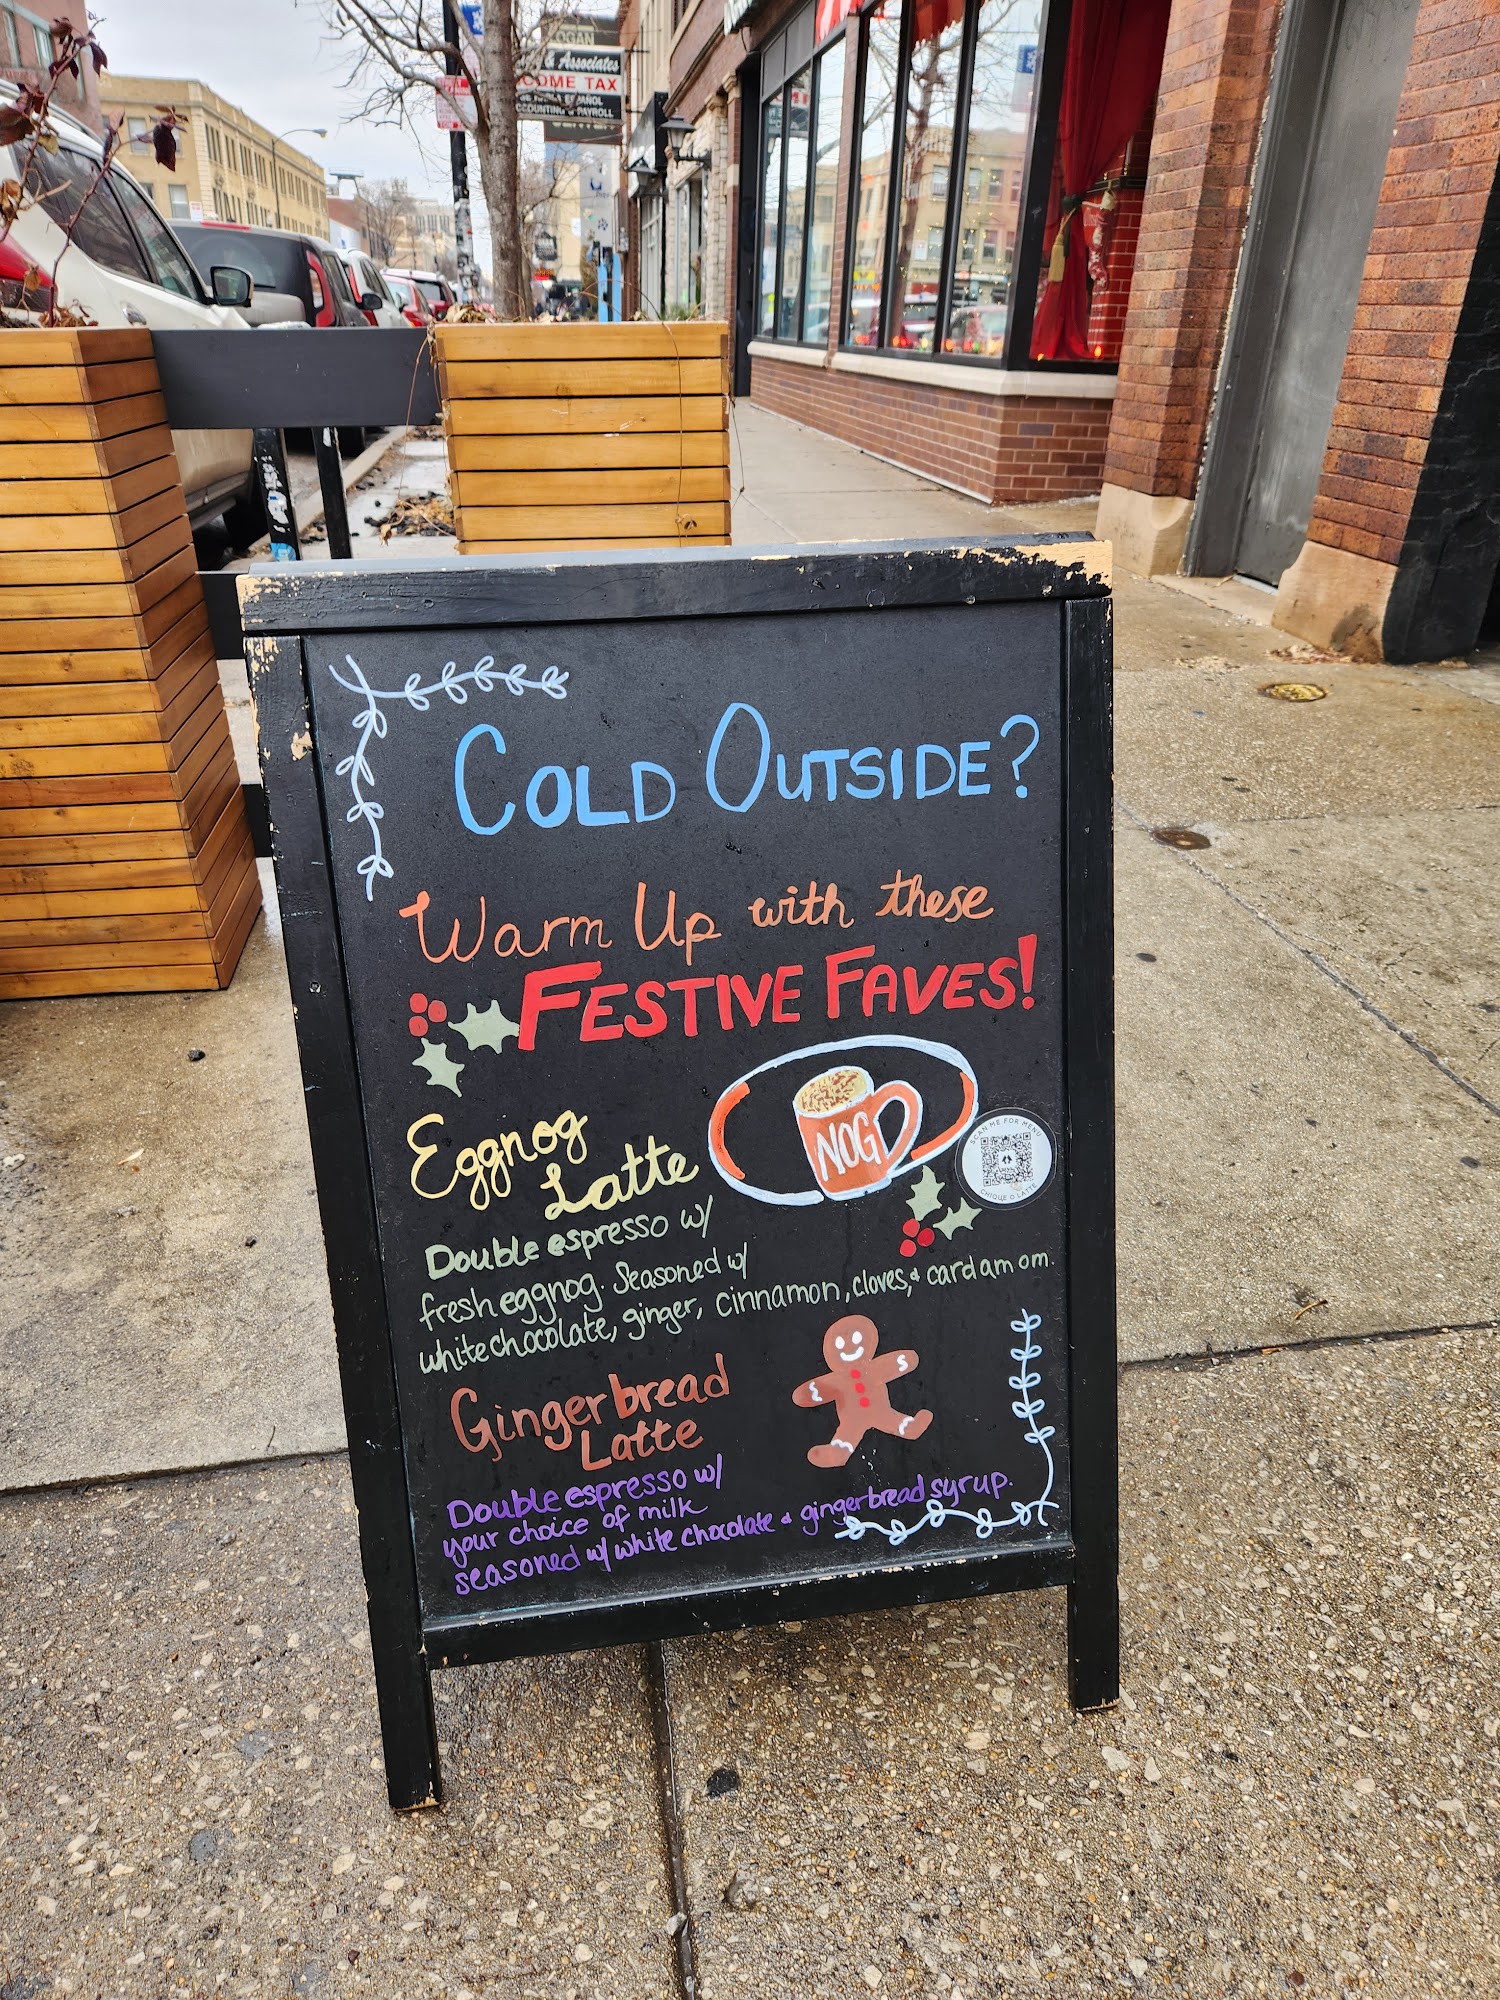 OGAN
& Associates
COME TAX
ESPAÑOL
ACCOUNTING & PAYROLL
COLD OUTSIDE?
WARM UP with these
FESTIVE FAVES!
NOG
SCAN ME FOR MENU
CHIQUE O LATTE
Eggnog
Latte
Double espresso w/
fresh eggnog. Seasoned w/
white chocolate, ginger, cinnamon, cloves, & cardamom.
Gingerbread
Latte
Double espresso w/
your choice of milk
seasoned w/ white chocolate & gingerbread syrup.